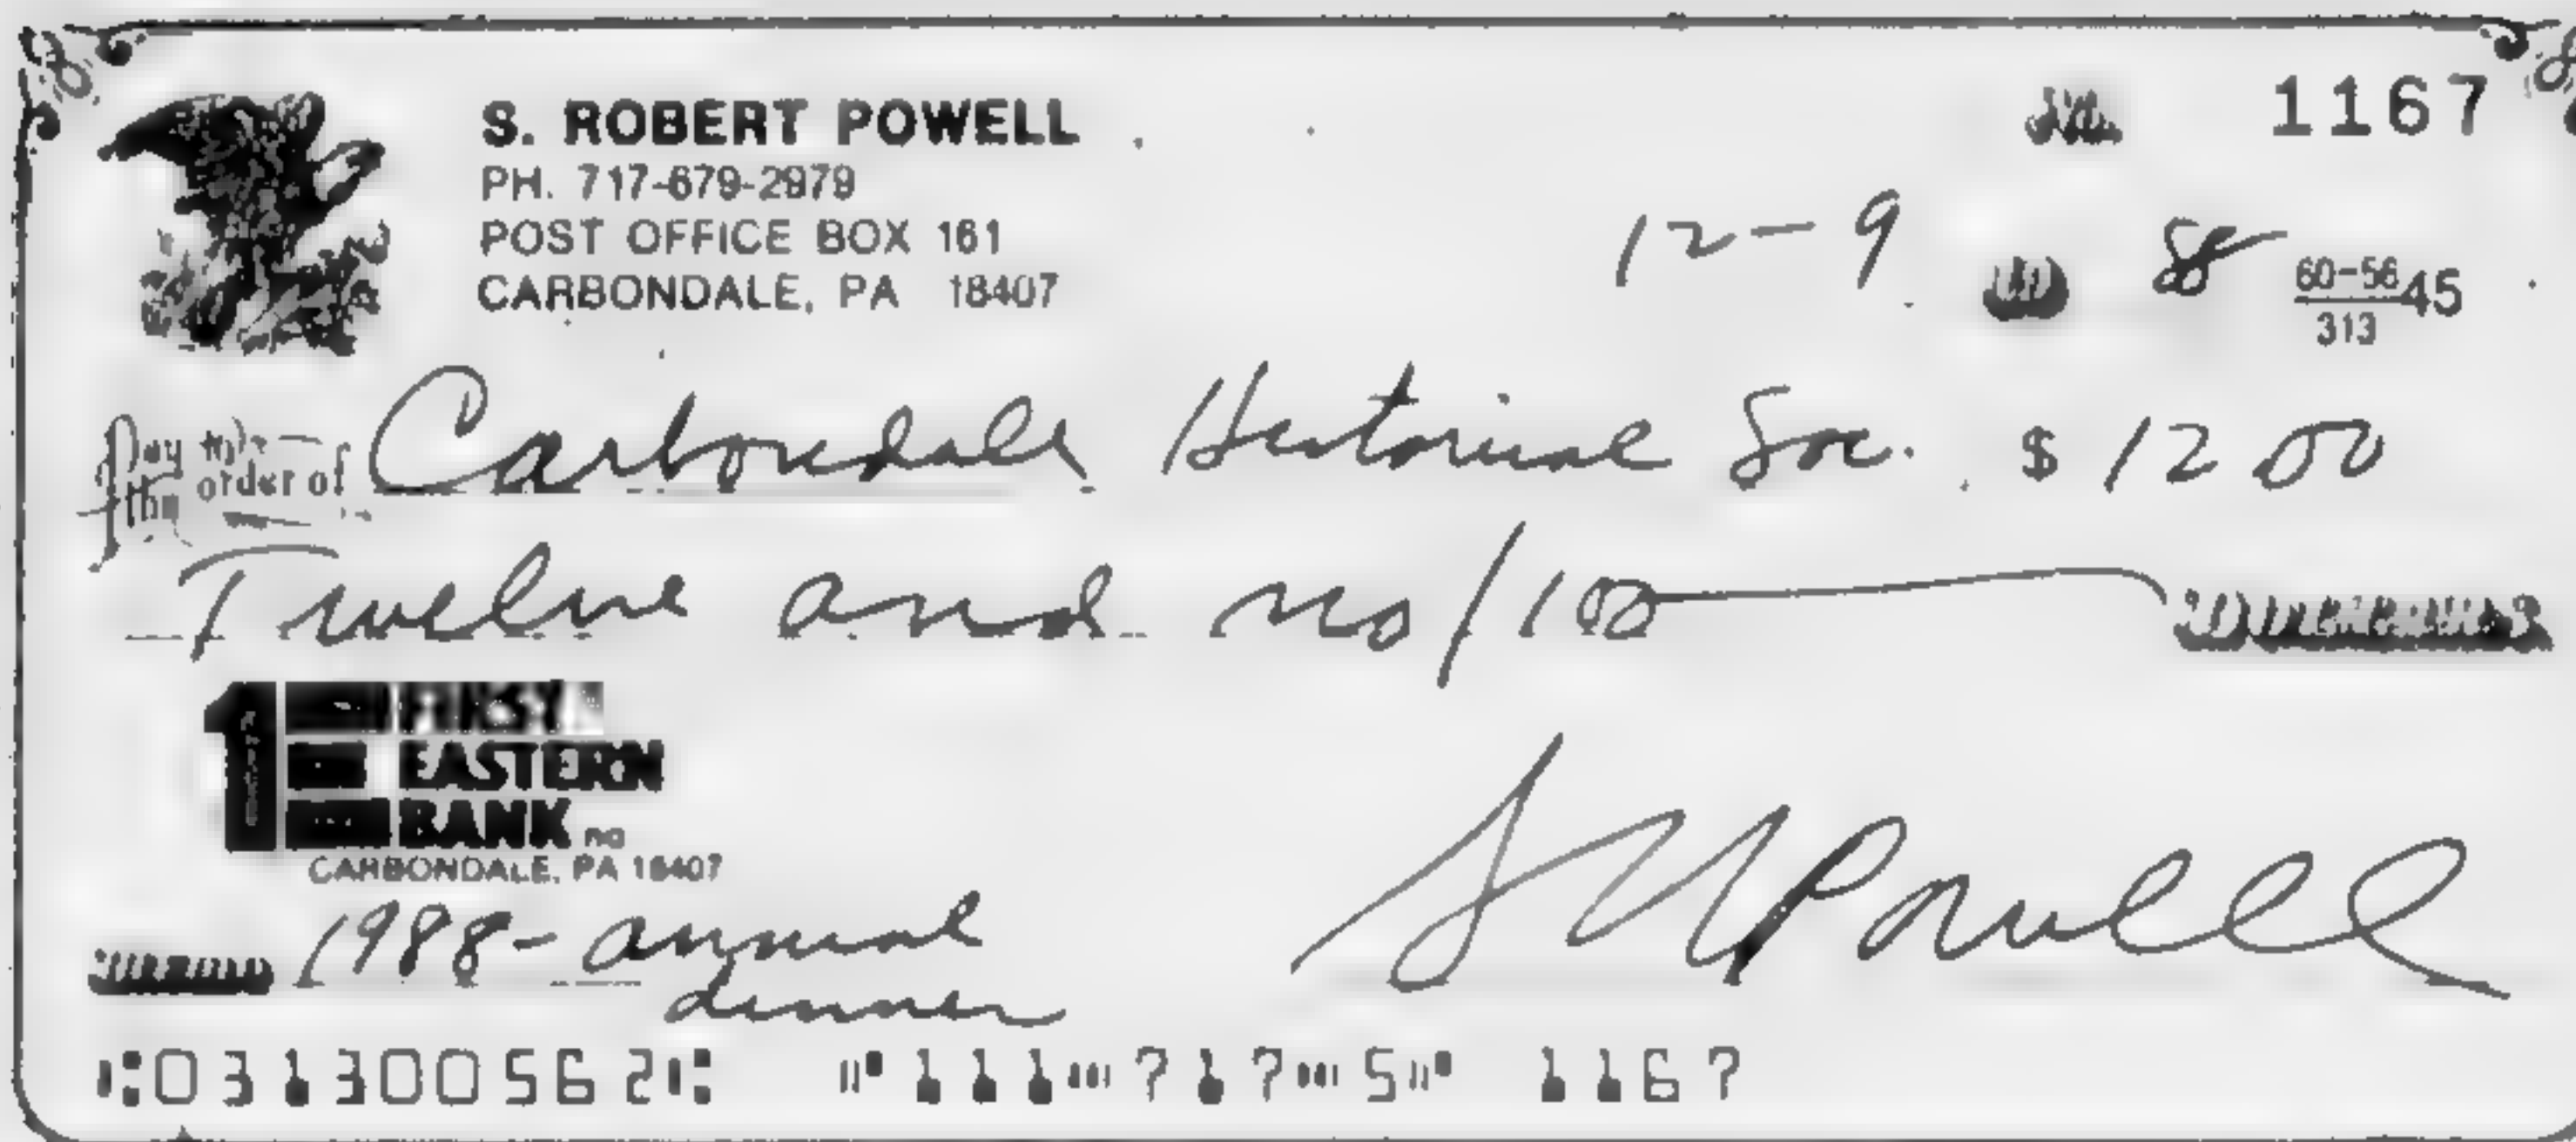 1167
S. ROBERT POWELL
PH. 717-679-2979
POST OFFICE BOX 161
CARBONDALE, PA 18407
12-9 88
60-56 45
313
Pay to the order of Carbondale Historical Soc. $ 12 00
Twelve and no/100
1 FIRST
EASTERN
BANK na
CARBONDALE, PA 18407
1988- annual
dinner
S R Powell
⑆031300562⑆ ⑈111⑉717⑉5⑈ 1167